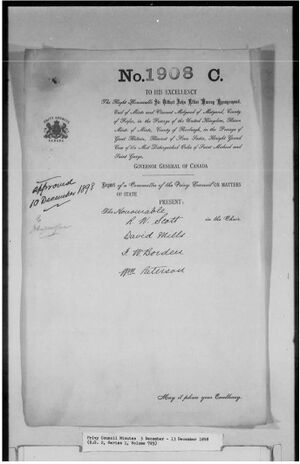 No. 1908 C.
TO HIS EXCELLENCY
The Right Honourable Sir Gilbert John Elliot Murray Kynynmound,
Earl of Minto and Viscount Melgund of Melgund, County
of Forfar, in the Peerage of the United Kingdom, Baron
Minto of Minto, County Roxburgh, in the Peerage of
Great Britain, Baronet of Nova Scotia, Knight Grand
Cross of the Most Distinguished Order of Saint Michael and
Saint George,
GOVERNOR GENERAL OF CANADA
PRIVY COUNCIL
CANADA
Report of a Committee of the Privy Council ON MATTERS
OF STATE
approved
10 December 1898
PRESENT:
The Honourable
R. W. Scott in the Chair
David Mills
F. W. Borden
Wm Paterson
May it please Your Excellency.
Privy Council Minutes 3 December - 13 December 1898
(R.G. 2, Series 1, Volume 785)